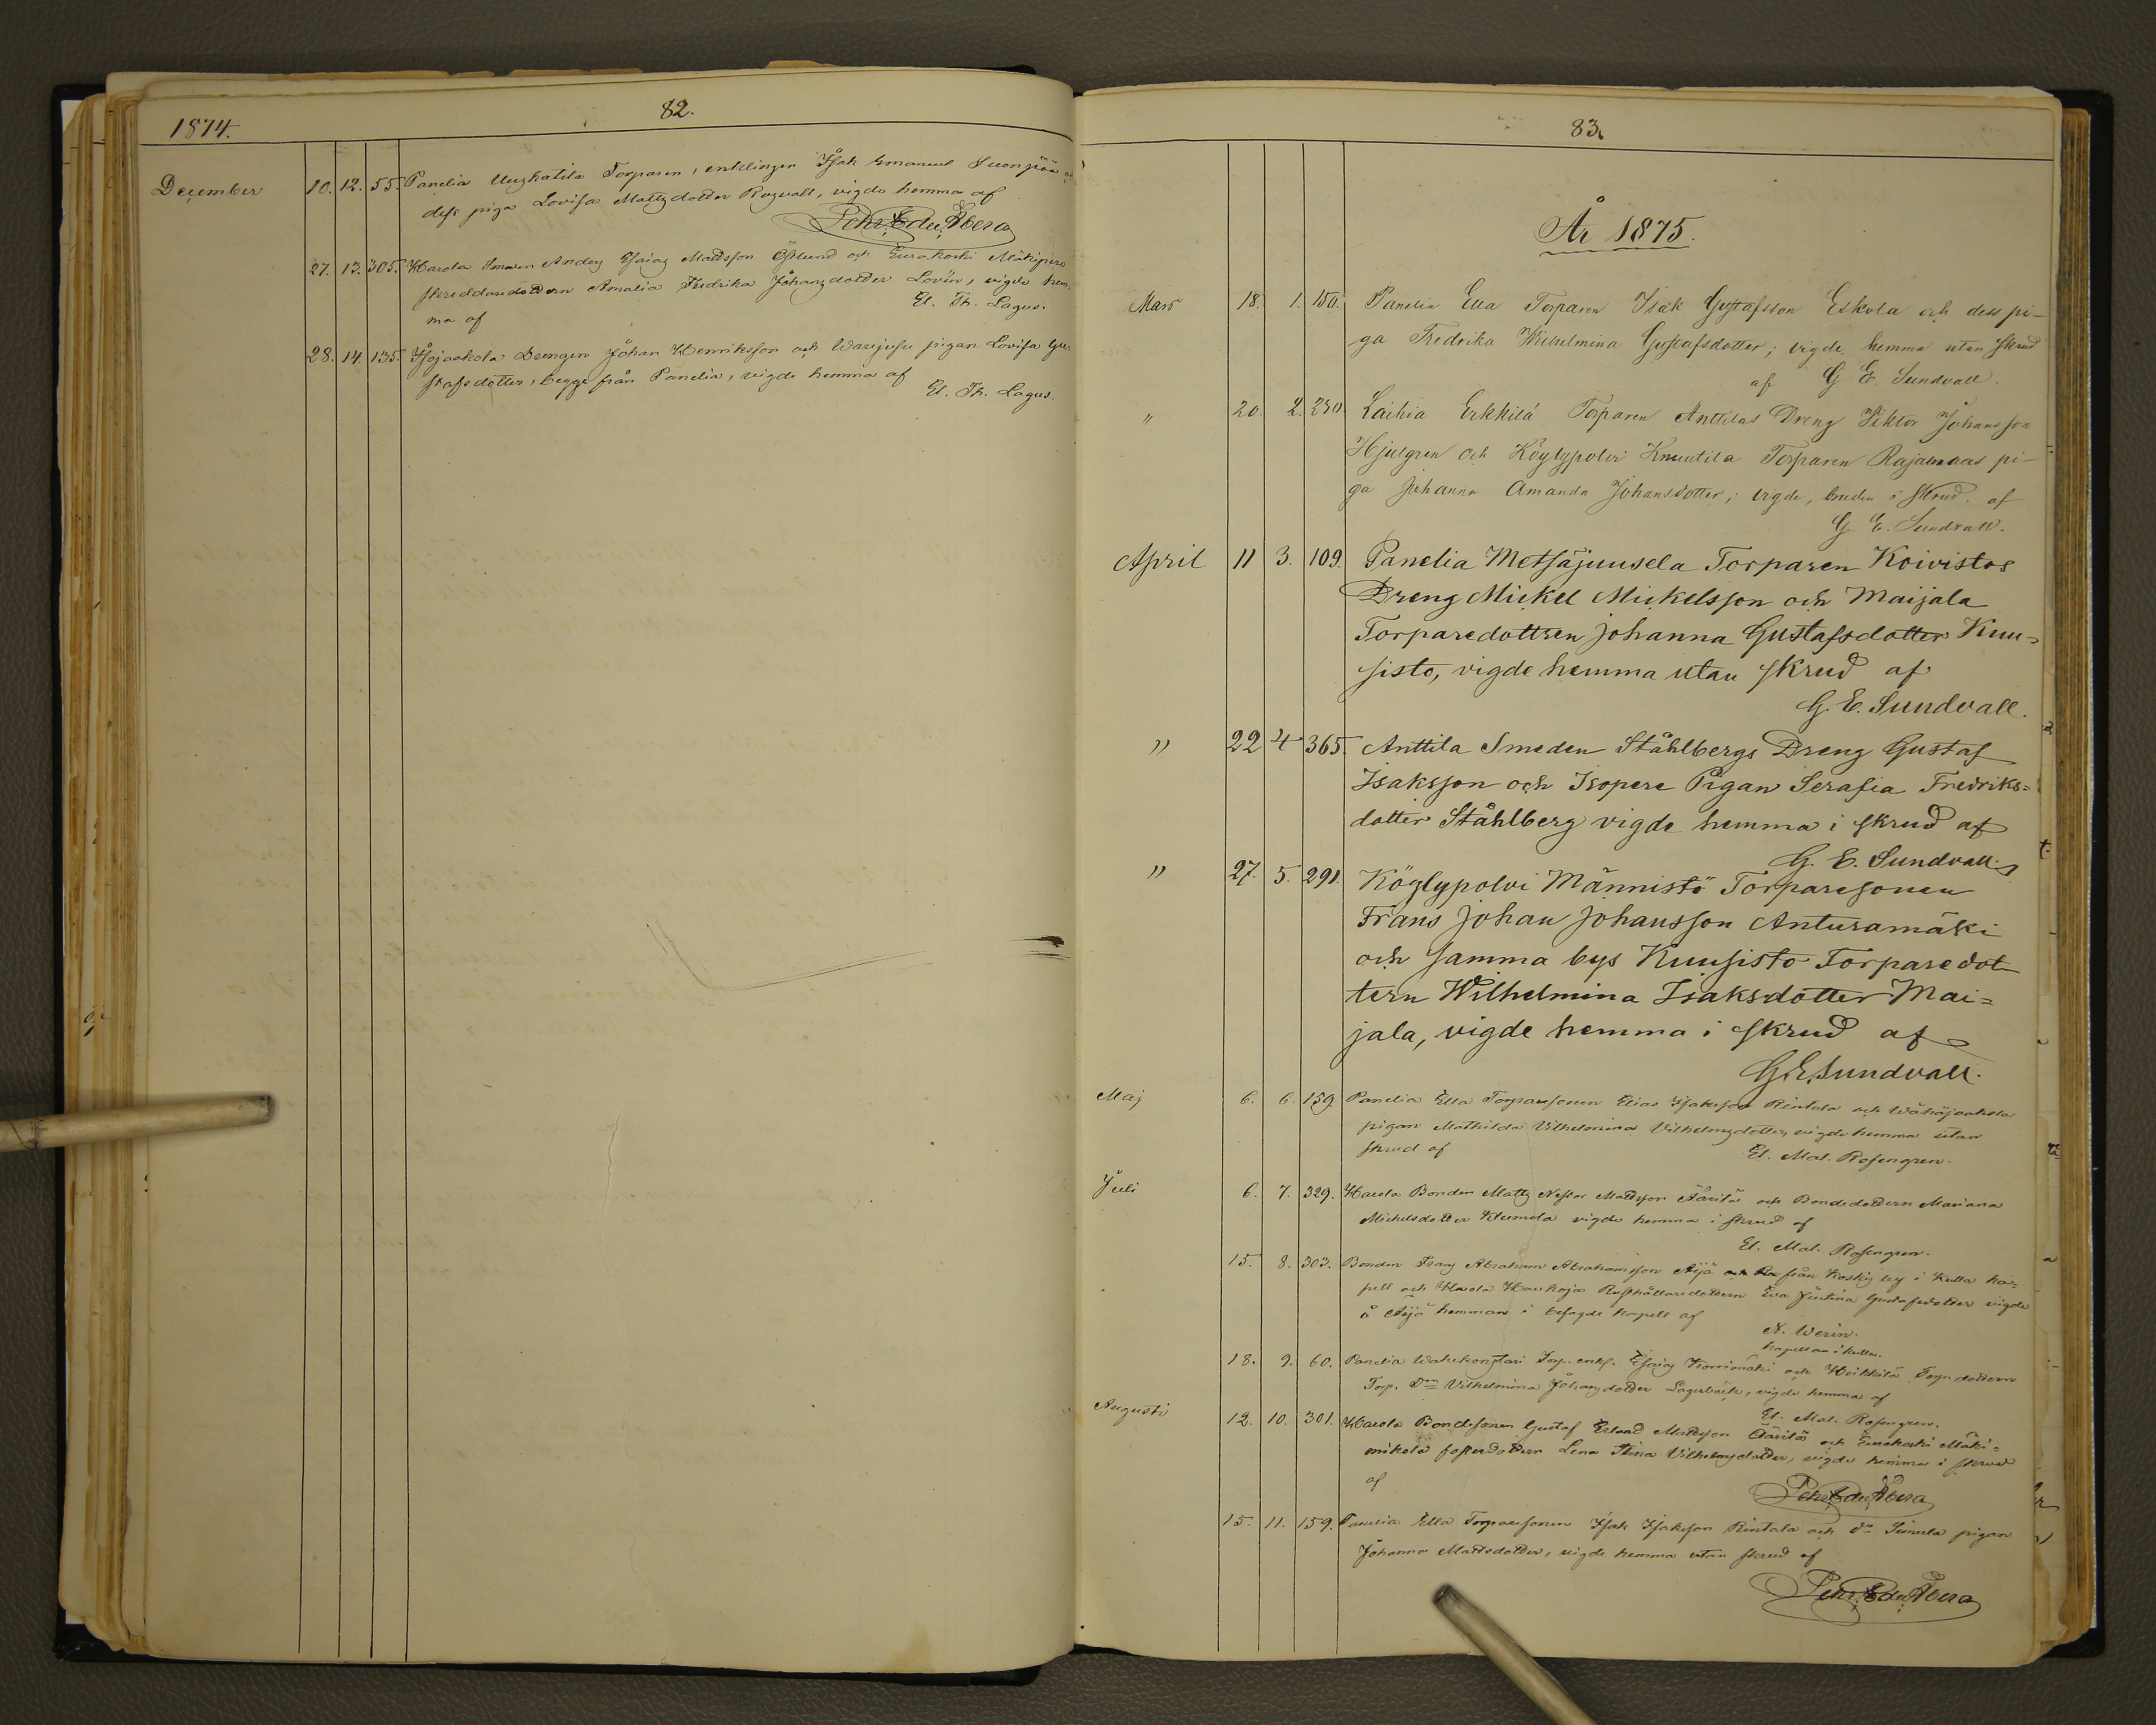 82.
1874.
December 10. 12. 55. Panelia Uuzkatila Torparen, enklingen Isak Emanuel Suonpää
dess piga Lovisa Mattzdotter Rozvall, vigde hemma af
Pehr Edv. Åbera
27. 13. 305. Harola Smeden Anderz Esaias Mattsson Östlund och Eurakoski Mäkipere
skreddaredottern Amalia Fredrika Johanzdotter Lovén, vigde hem-
ma af El. Th. Lagus.
28. 14. 135. Isojaakola Drengen Johan Henriksson och Warejussi pigan Lovisa Gu-
stafsdotter, begge från Panelia, vigde hemma af
El. Th. Lagus.
83.
År 1875.
Mars 18. 1. 150. Panelia Ella Torparen Isak Gustafsson Eskola och dess pi-
ga Fredrika Wilhelmina Gustafsdotter; vigde hemma utan skrud
af G. E. Sundvall.
" 20. 2. 230. Laihia Erkkilä Torparen Anttilas Dreng Viktor Johansson
Hjulgren och Köylypolvi Knuutila Torparen Rajamaas pi-
ga Johanna Amanda Johansdotter; vigde, bruden i skrud af
G. E. Sundvall.
April 11 3. 109. Panelia Metsäjuusela Torparen Koivistos
Dreng Mickel Mickelsson och Maijala
Torparedottren Johanna Gustafsdotter Kuu=
sisto, vigde hemma utan skrud af
G. E. Sundvall.
" 22 4 365. Anttila Smeden Ståhlbergs Dreng Gustaf
Isaksson och Isopere Pigan Serafia Fredriks=
dotter Ståhlberg vigde hemma i skrud af
G. E. Sundvall.
" 27. 5. 291. Köylypolvi Männistö Torparesonen
Frans Johan Johansson Anturamäki
och samma bys Kuusisto Torparedot
tern Wilhelmina Isaksdotter Mai=
jala, vigde hemma i skrud af
G. E. Sundvall.
Maj 6. 6. 159. Panelia Ella Torparesonen Elias Isaksson Rintala och Wähäjaakola
pigan Mathilda Vilhelmina Vilhelmzdotter, vigde hemma utan
skrud af El. Mal. Rosengren.
Juli 6. 7. 329. Harola Bonden Mattz Nestor Mattsson Äärilä och Bondedottern Mariana
Michelsdotter Klemola vigde hemma i skrud af
El. Mal. Rosengren.
15. 8. 303. Bonden Franz Abraham Abrahamsson Äijä från Koskis by i Kulla ka=
pell och Harola Haukoja Rusthållaredottern Eva Justina Gustafsdotter vigde
å Äijä hemman i besagde kapell af
N. Werin.
Kapellan i Kulla.
18. 9. 60. Panelia Torp. enkl. Esaias och Heikkilä
Torp. Dn Vilhelmina Johanzdotter Lagerbäck, vigde hemma af
El. Mal. Rosengren.
Augusti 12. 10. 301. Harola Bondesonen Gustaf Erland Mattsson Äärilä och Eurakoski Mäki=
mikola fosterdottern Lena Stina Vilhelmzdotter, vigde hemma i skrud
af
Pehr Edv. Åbera
15. 11. 159. Panelia Ella Torparesonen Isak Isaksson Rintala och dn Simula pigan
Johanna Mattsdotter, vigde hemma utan skrud af
Pehr Edv. Åbera